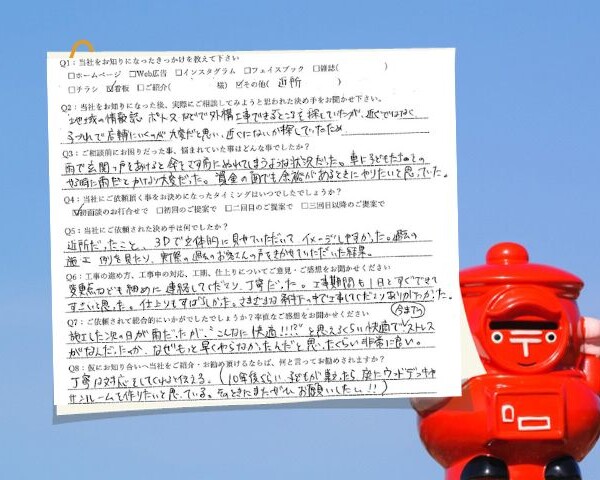 Q1：当社をお知りになったきっかけを教えて下さい
□ホームページ □Web広告 □インスタグラム □フェイスブック □雑誌( )
□チラシ ☑看板 □ご紹介( 様) ☑その他( 近所 )
Q2：当社をお知りになった後、実際にご相談してみようと思われた決め手をお聞かせ下さい。
地域の情報誌 ポストなどで外構工事できるところを探していたが、近くではなく
子づれで店舗にいくのが大変だと思い、近くにないか探していたため
Q3：ご相談前にお困りだった事、悩まれていた事はどんな事でしたか？
雨で玄関の戸をあけると傘をさす前にぬれてしまうような状況だった。車に子どもたちをのせ
る時に雨だとかなり大変だった。資金の面でも余裕があるときにやりたいと思っていた。
Q4：当社にご依頼頂く事をお決めになったタイミングはいつでしたでしょうか？
☑初面談のお打合せで □初回のご提案で □二回目のご提案で □三回目以降のご提案で
Q5：当社にご依頼された決め手は何でしたか？
近所だったこと、3Dで立体的に見せていただいてイメージしやすかった。過去の
施工例を見たり、実際の過去のお客さんの声をきかせていただいた結果。
Q6：工事の進め方、工事中の対応、工期、仕上りについてご意見・ご感想をお聞かせください
変更点なども細めに連絡してくださり、丁寧だった。工事期間も1日とすぐできて
すごいと思った。仕上りもすばらしかった。さまざまな条件の中で工事してくださりありがたかった。
Q7：ご依頼されて総合的にいかがでしたでしょうか？率直なご感想をお聞かせください
施工した次の日が雨だったが、こんなに快適!!!?と思えるくらい快適で今までのストレス
がなんだったのか、なぜもっと早くやらなかったんだと思ったくらい非常に良い。
Q8：仮にお知り合いへ当社をご紹介・お勧め頂けるならば、何と言ってお勧めされますか？
丁寧な対応をしてくれると伝える。(10年後くらい、子どもが巣立ったら 庭にウッドデッキや
サンルームを作りたいと思っている。そのときにまたぜひお願いしたい!!)